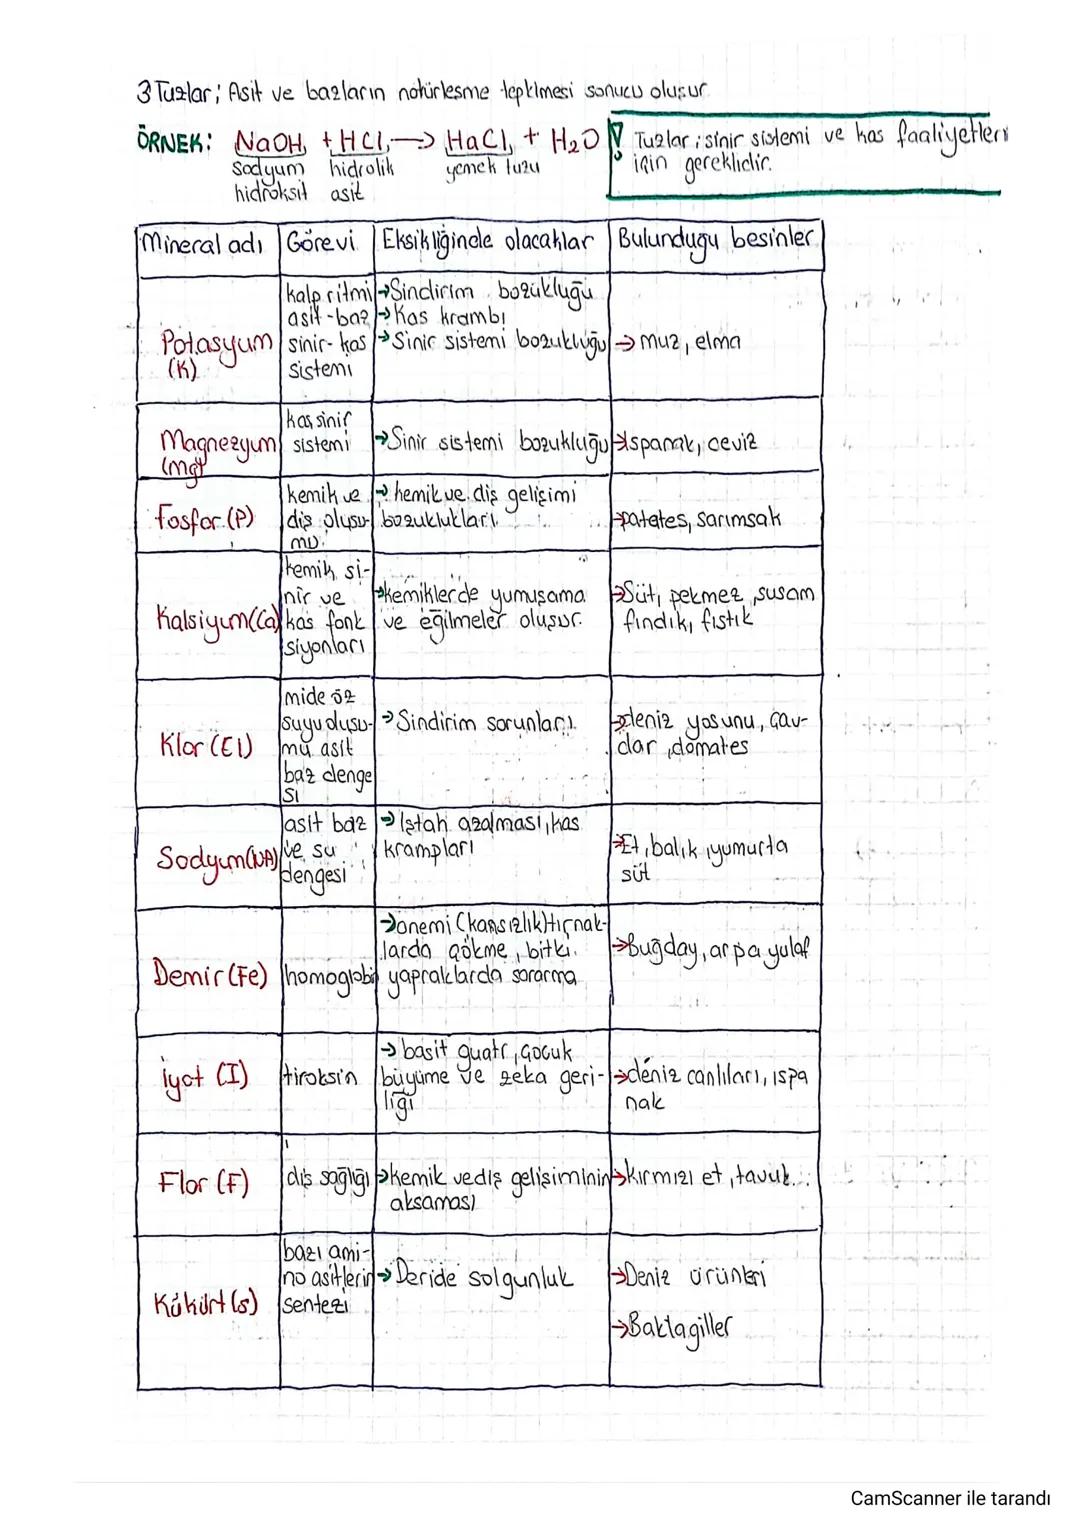 3 Tuzlar; Asit ve bazların nötürleşme tepkimesi sonucu oluşur.
ÖRNEK: NaOH + HCl → HaCl + H₂O
Sodyum hidroksit
hidrolik asit
yemek tuzu
! Tuzlar; sinir sistemi ve kas faaliyetleri
için gereklidir.
Mineral adı | Görevi | Eksikliğinde olacaklar | Bulunduğu besinler
Potasyum
(K)
kalp ritmi
asit-baz
sinir-kas
sistemi
→Sindirim bozukluğu
→Kas krambı
→Sinir sistemi bozukluğu
→ muz, elma
Magnezyum
(mg)
kas sinir
sistemi
→Sinir sistemi bozukluğu
→Ispanak, ceviz
fosfor (P)
kemik ve
diş oluşu-
mu.
→ kemik ve diş gelişimi
bozuklukları.
→patates, sarımsak
Kalsiyum(Ca)
kemik si-
nir ve
kas fonk
siyonları
→kemiklerde yumuşama
ve eğilmeler oluşur.
→Süt, pekmez, susam
fındık, fıstık
Klor (Cl)
mide öz
suyu oluşu-
mu asit
baz denge
si
→Sindirim sorunları.
→deniz yosunu, çav-
dar, domates
Sodyum(NA)
asit baz
ve su
dengesi
→ İştah azalması, kas
krampları
→Et, balık, yumurta
süt
Demir (Fe)
homoglobi
→onemi (kansızlık) tırnak-
larda çökme, bitki
yapraklarda sararma
→Buğday, arpa yulaf
iyot (I)
tiroksin
→ basit guatr, çocuk
büyüme ve zeka geri-
liği
→deniz canlıları, ıspa
nak
Flor (F)
diş sağlığı
→kemik ve diş gelişiminin
aksaması
→kırmızı et, tavuk..
Kükürt (s)
bazı ami-
no asitlerin
sentezi
→ Deride solgunluk
→Deniz ürünleri
→Baklagiller
CamScanner ile tarandı